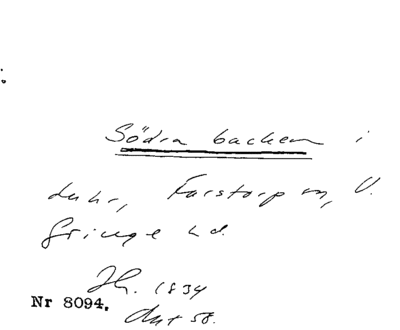 Södra backen i
Luhr, Farstorp sn, V.
Göinge hd.
Jh. 1834
Nr 8094.
Akt 58.